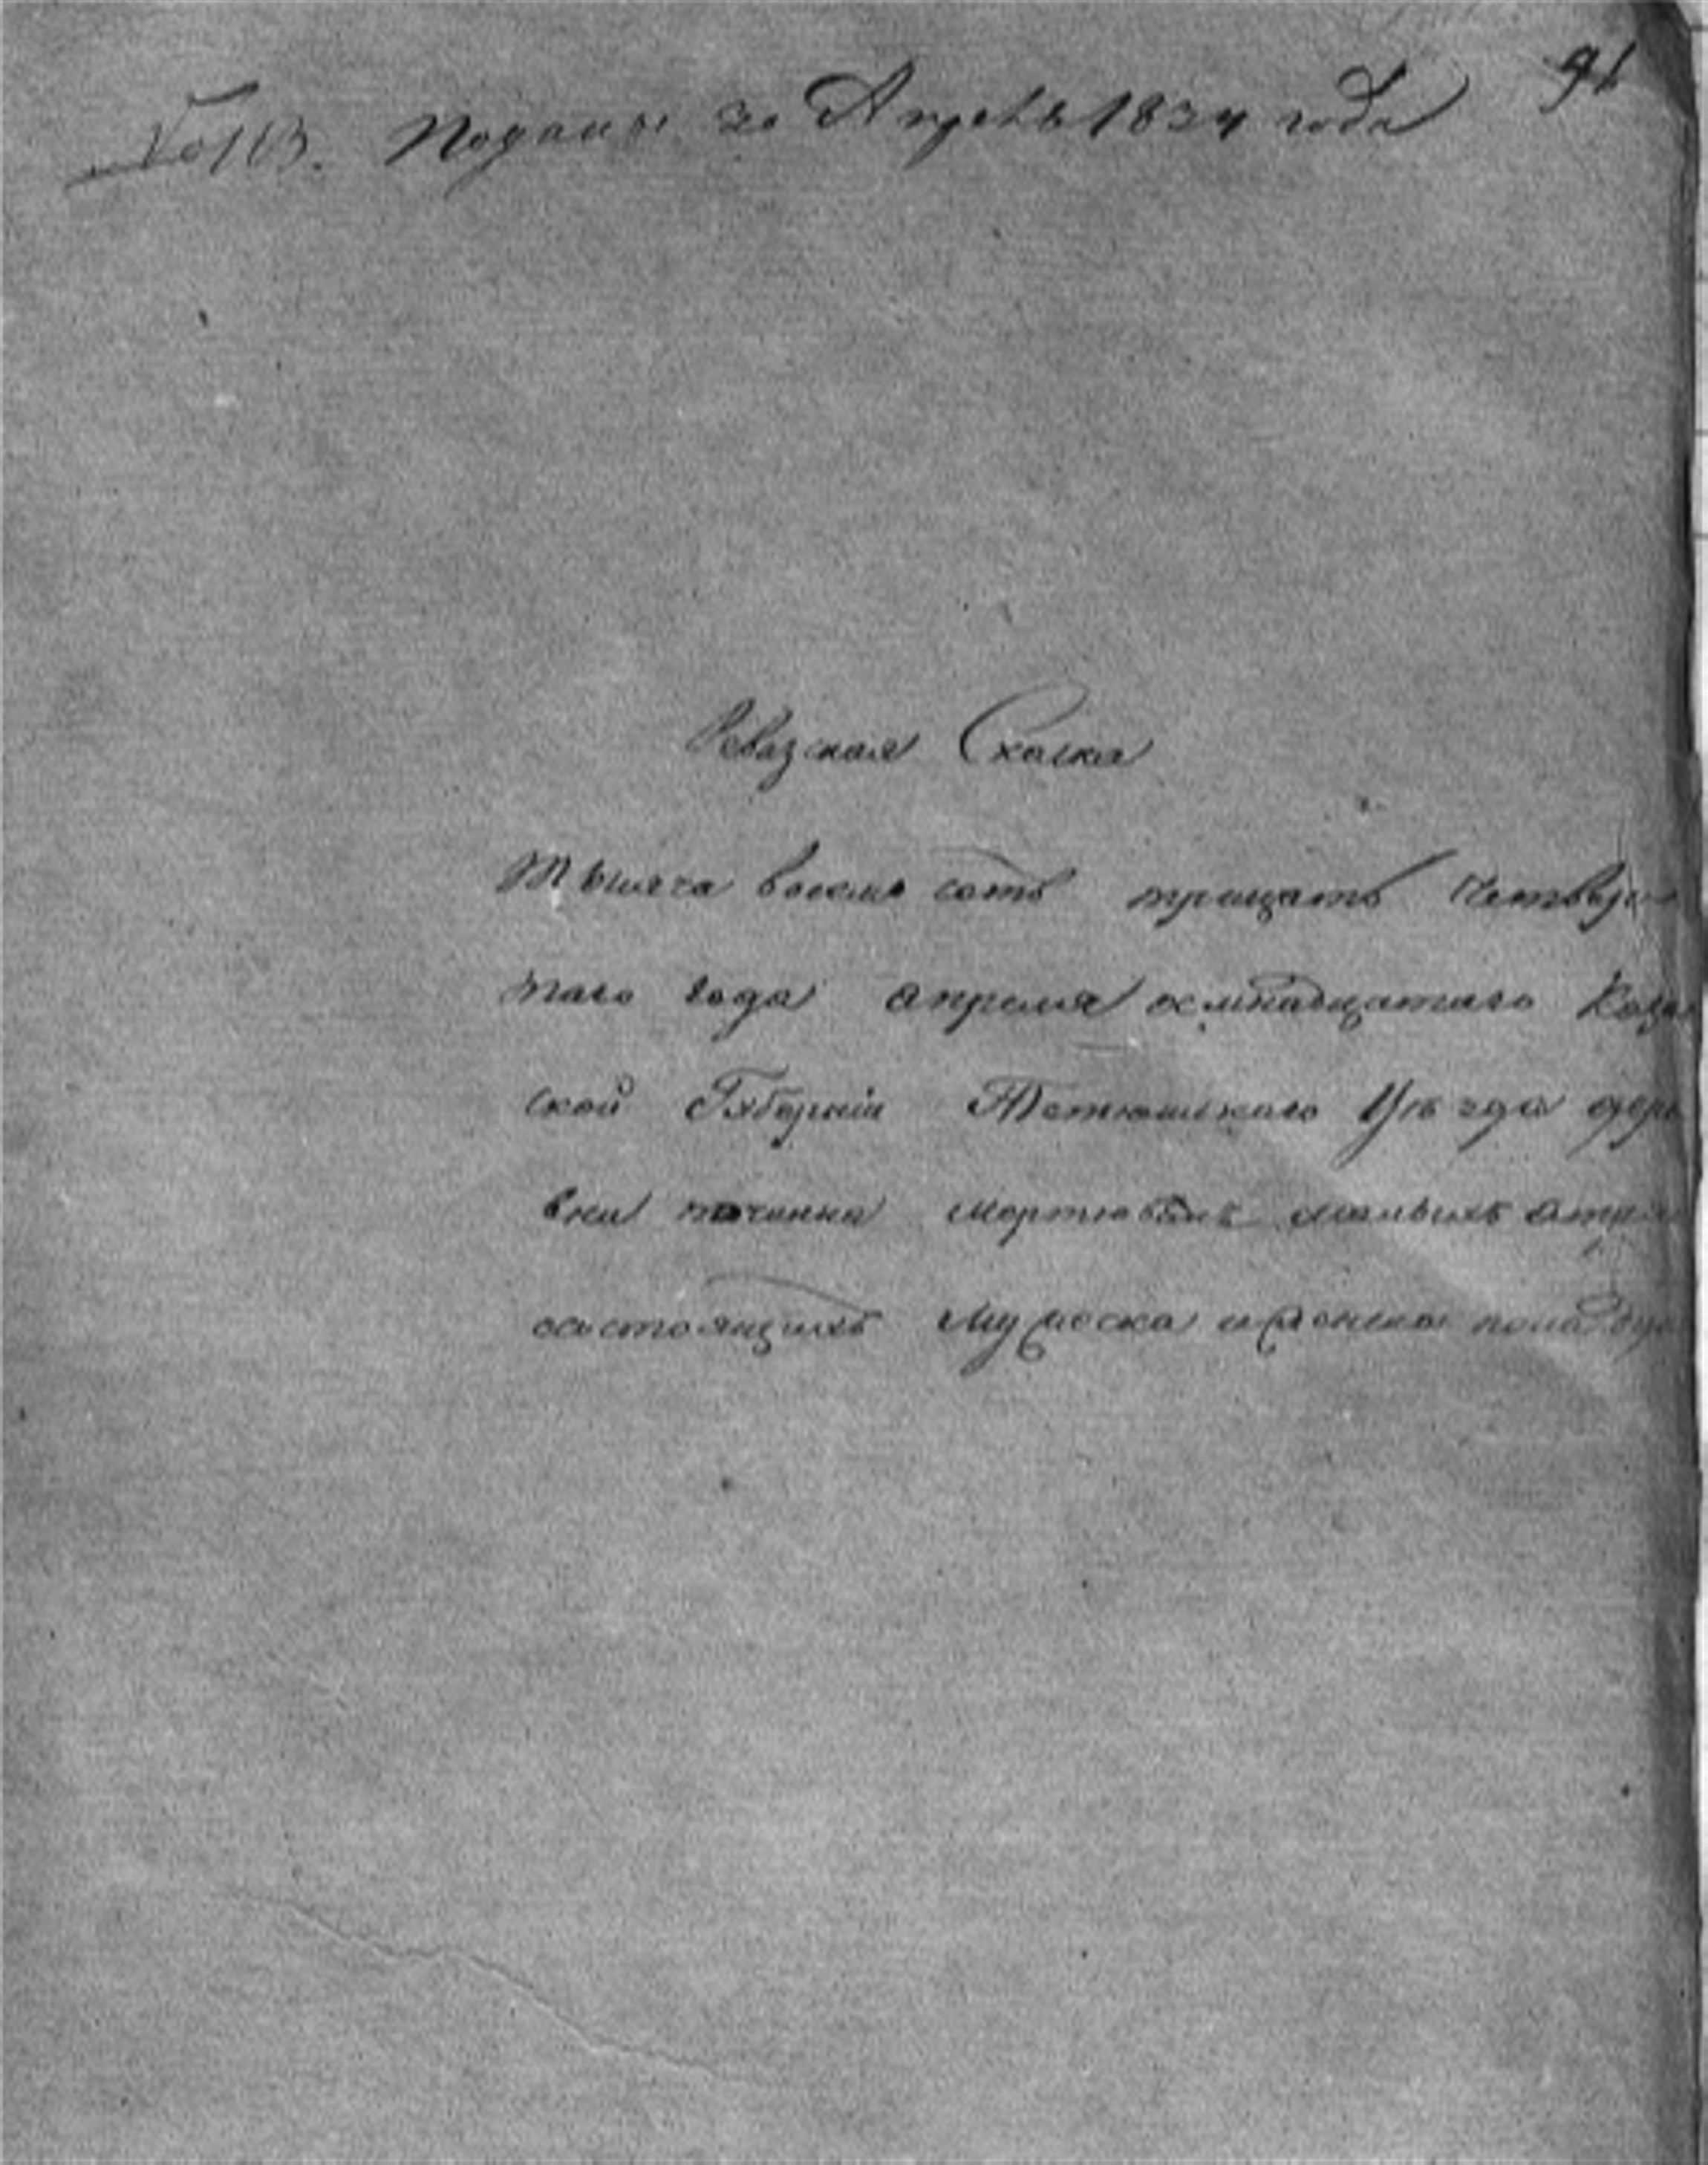 91
Поданы 20 Апрель 1834 года
Ревизкая Скаска
Тысяча восемь сотъ трицать Четвер
таго года апреля осмнадцатаго Каза
ской Губерніи Тетюшскаго Уѣзда дере
вни починка
состоящихъ Мужеска и женска пола